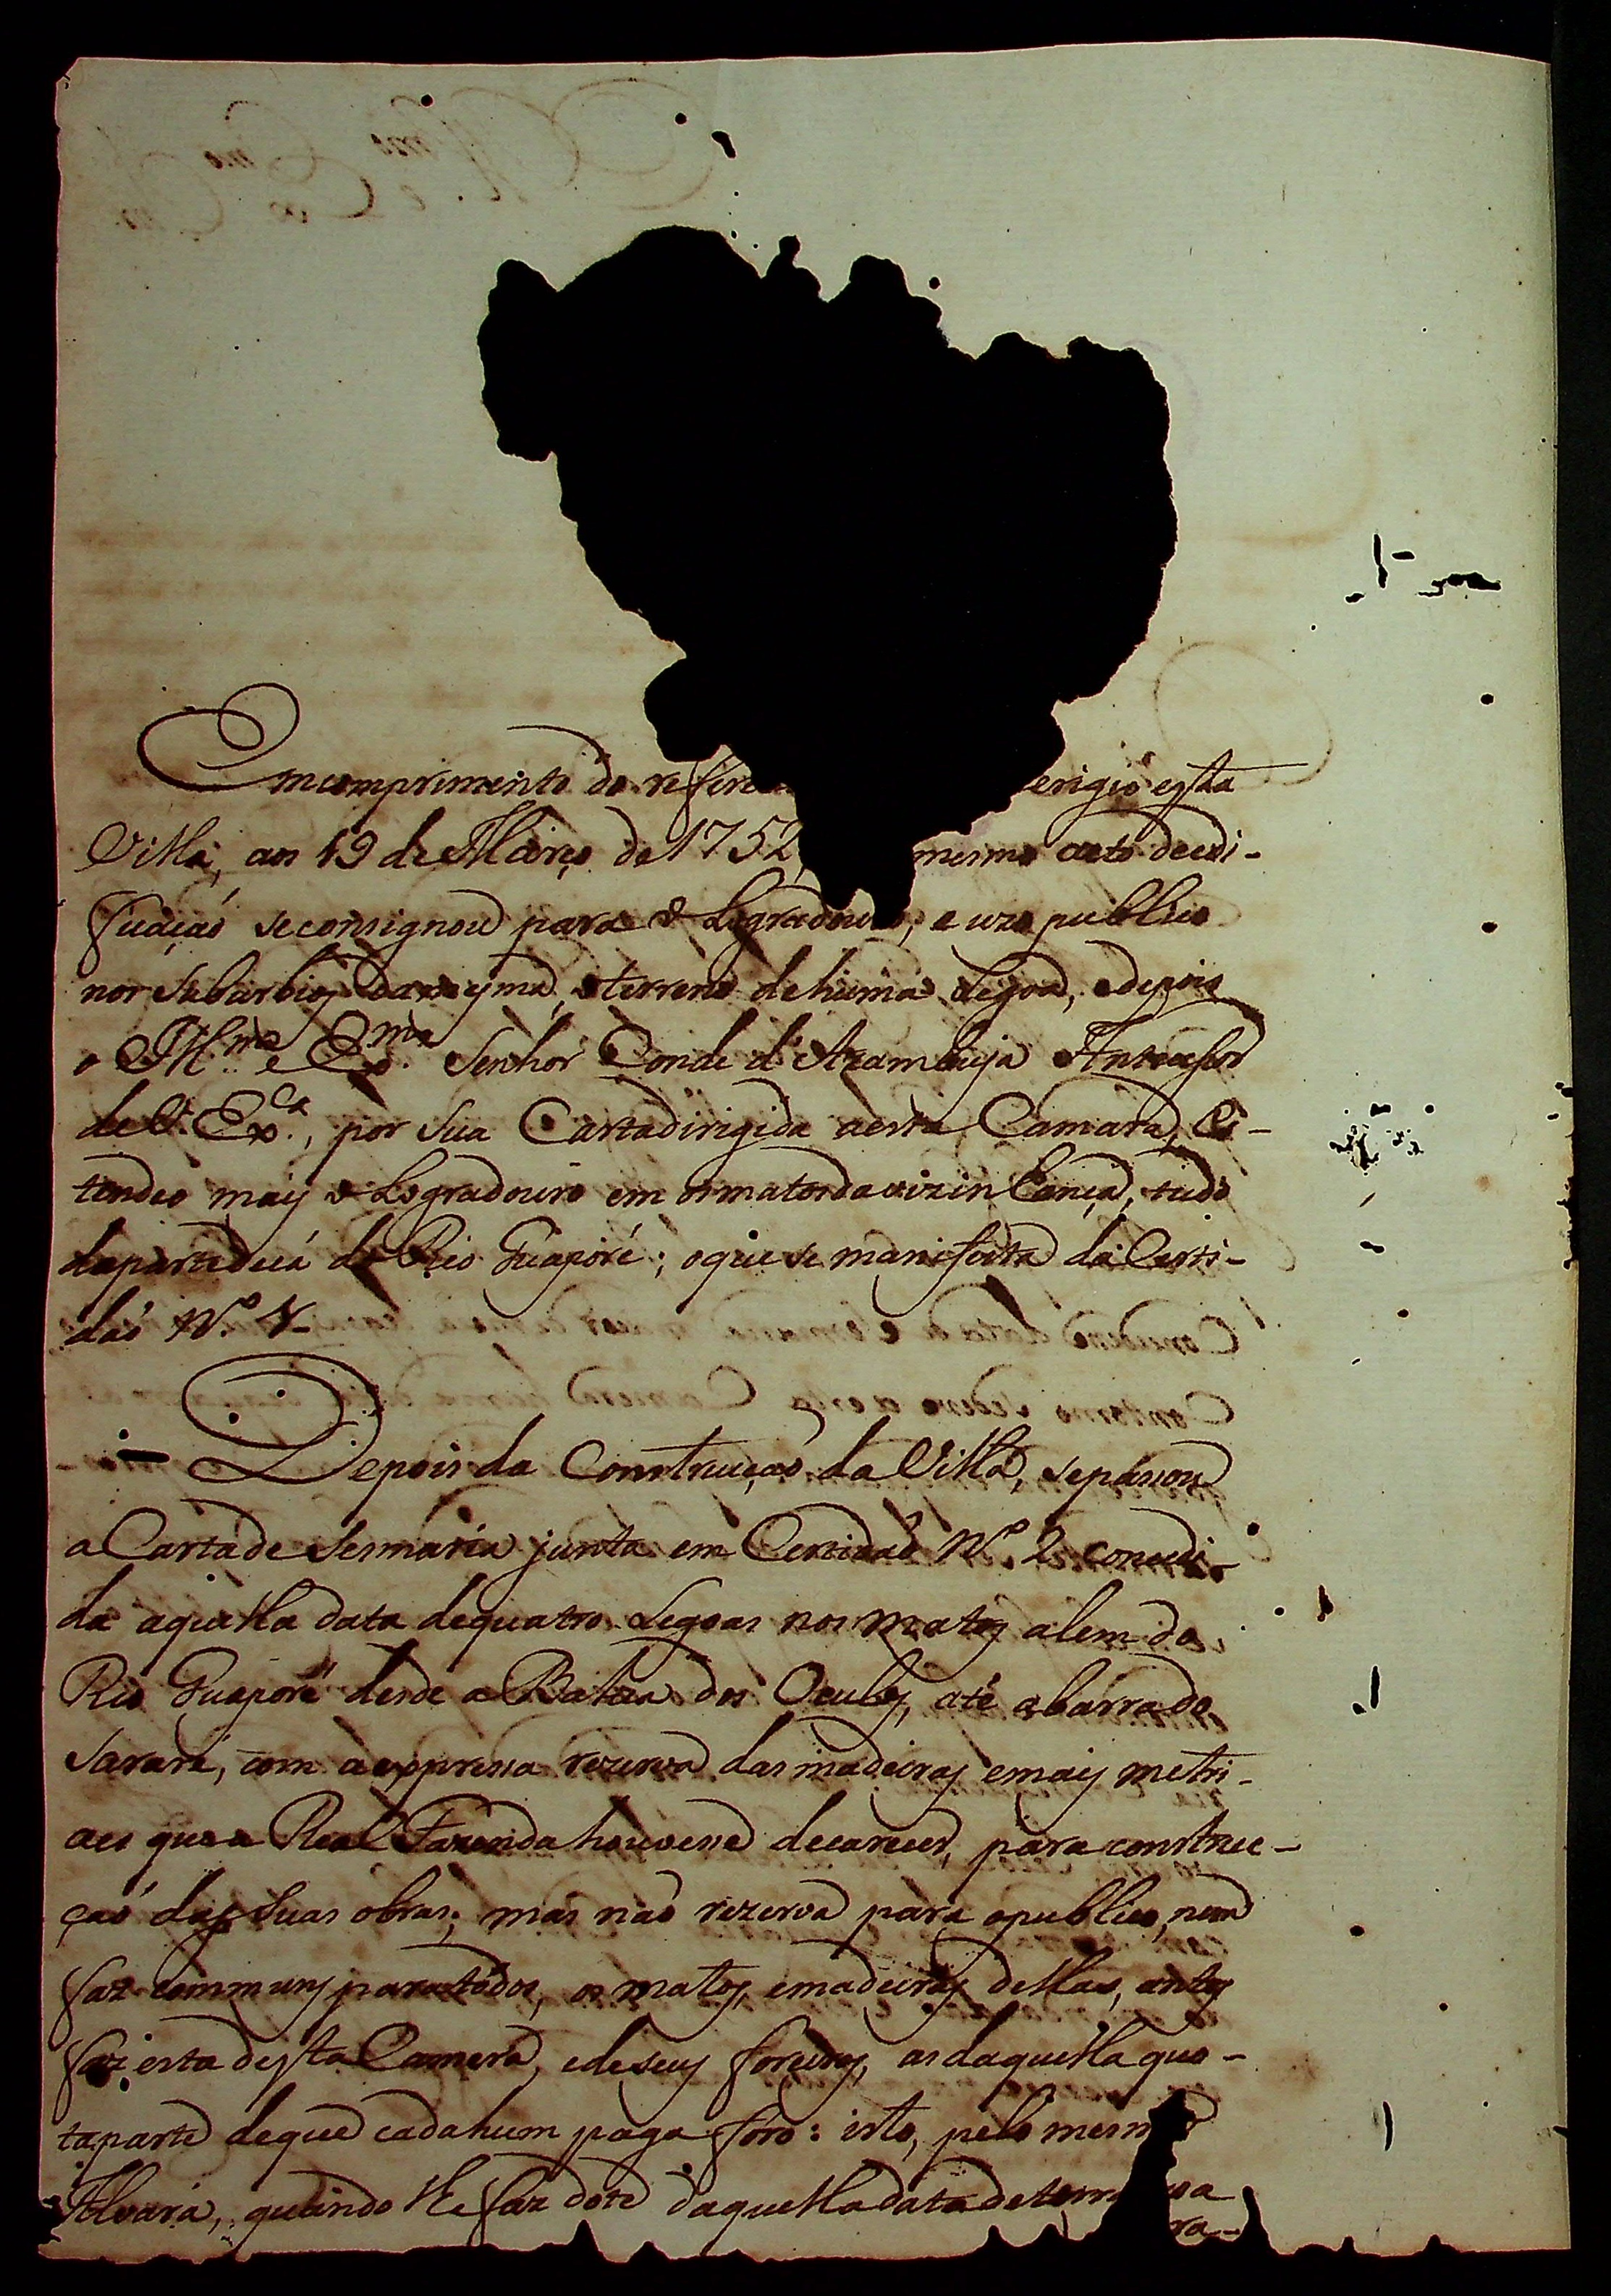 Emcomprimento do refer erigio esta
Villa, aos 19 de Março de 1752, mesmo acto deedi-
ficaçaõ seconsignou para o Logradouro, e uzo publico
nos Subarbios damesma, o terreno dehuma Legoa, edepois
o Ill.mo e Ex.mo Senhor Conde d'Azambuja Antecessor
de V. Ex.ca, por Sua Carta dirigida aesta Camara, Es-
tendeo mais o Logradouro em os matos da vizinhança, tudo
daparte decá do Rio Guaporé; oque se manifesta da Certi-
daõ N.º
Depois da Construcçaõ da Villa, sepassou
a Carta de Sesmaria junta em Certidaõ N.º 2 concedi-
da aquella data dequatro Legoas nos matos alem do
Rio Guaporé desde a dos Oculos, até abarra do
Sararé, com aexpressa rezerva das madeiras emais metri-
aes que a Real Fazenda houvesse decarecer, para construc-
çaõ das Suas obras; mas naõ rezerva para opublico, nem
faz communs para todos, os matos, emadeiras dellas, antes
faz esta desta Camera, edeseus foreiros, as daquella quo-
taparte deque cadahum paga foro: isto, pelo mesmo
Alvará, quando lhe faz dote daquella data deterra
ra-